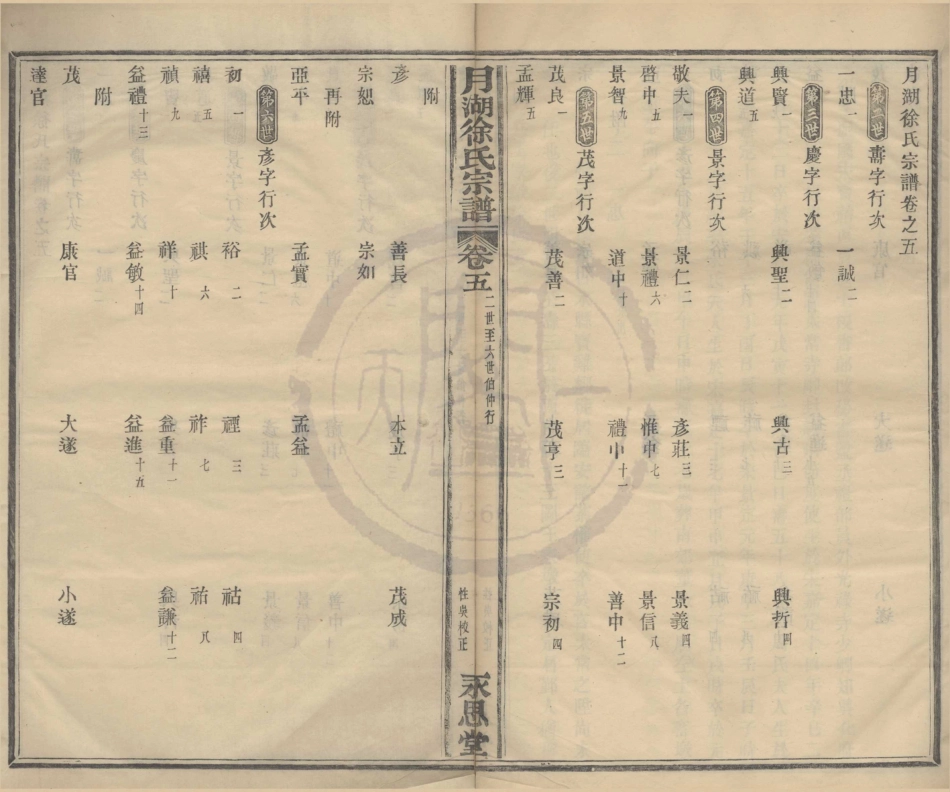 月湖徐氏宗譜卷之五
第二世 壽字行次
一忠一 一誠二
第三世 慶字行次
興賢一 興聖二 興古三 興哲四
興道五
第四世 景字行次
敬夫一 景仁二 彥莊三 景義四
啓中五 景禮六 惟中七 景信八
景智九 道中十 禮中十一 善中十二
第五世 茂字行次
茂良一 茂善二 茂亨三 宗初四
孟輝五
月湖徐氏宗譜 卷五 二世至六世伯仲行 性與校正 永思堂
附
彥 善長 本立 茂成
宗恕 宗如
再附
亞平 孟實 孟益
第六世 彥字行次
初一 裕二 禋三 祜四
禧五 祺六 祚七 祐八
禎九 祥十 益重十一 益謙十二
益禮十三 益敏十四 益進十五
附
茂 康官 大遂 小遂
達官